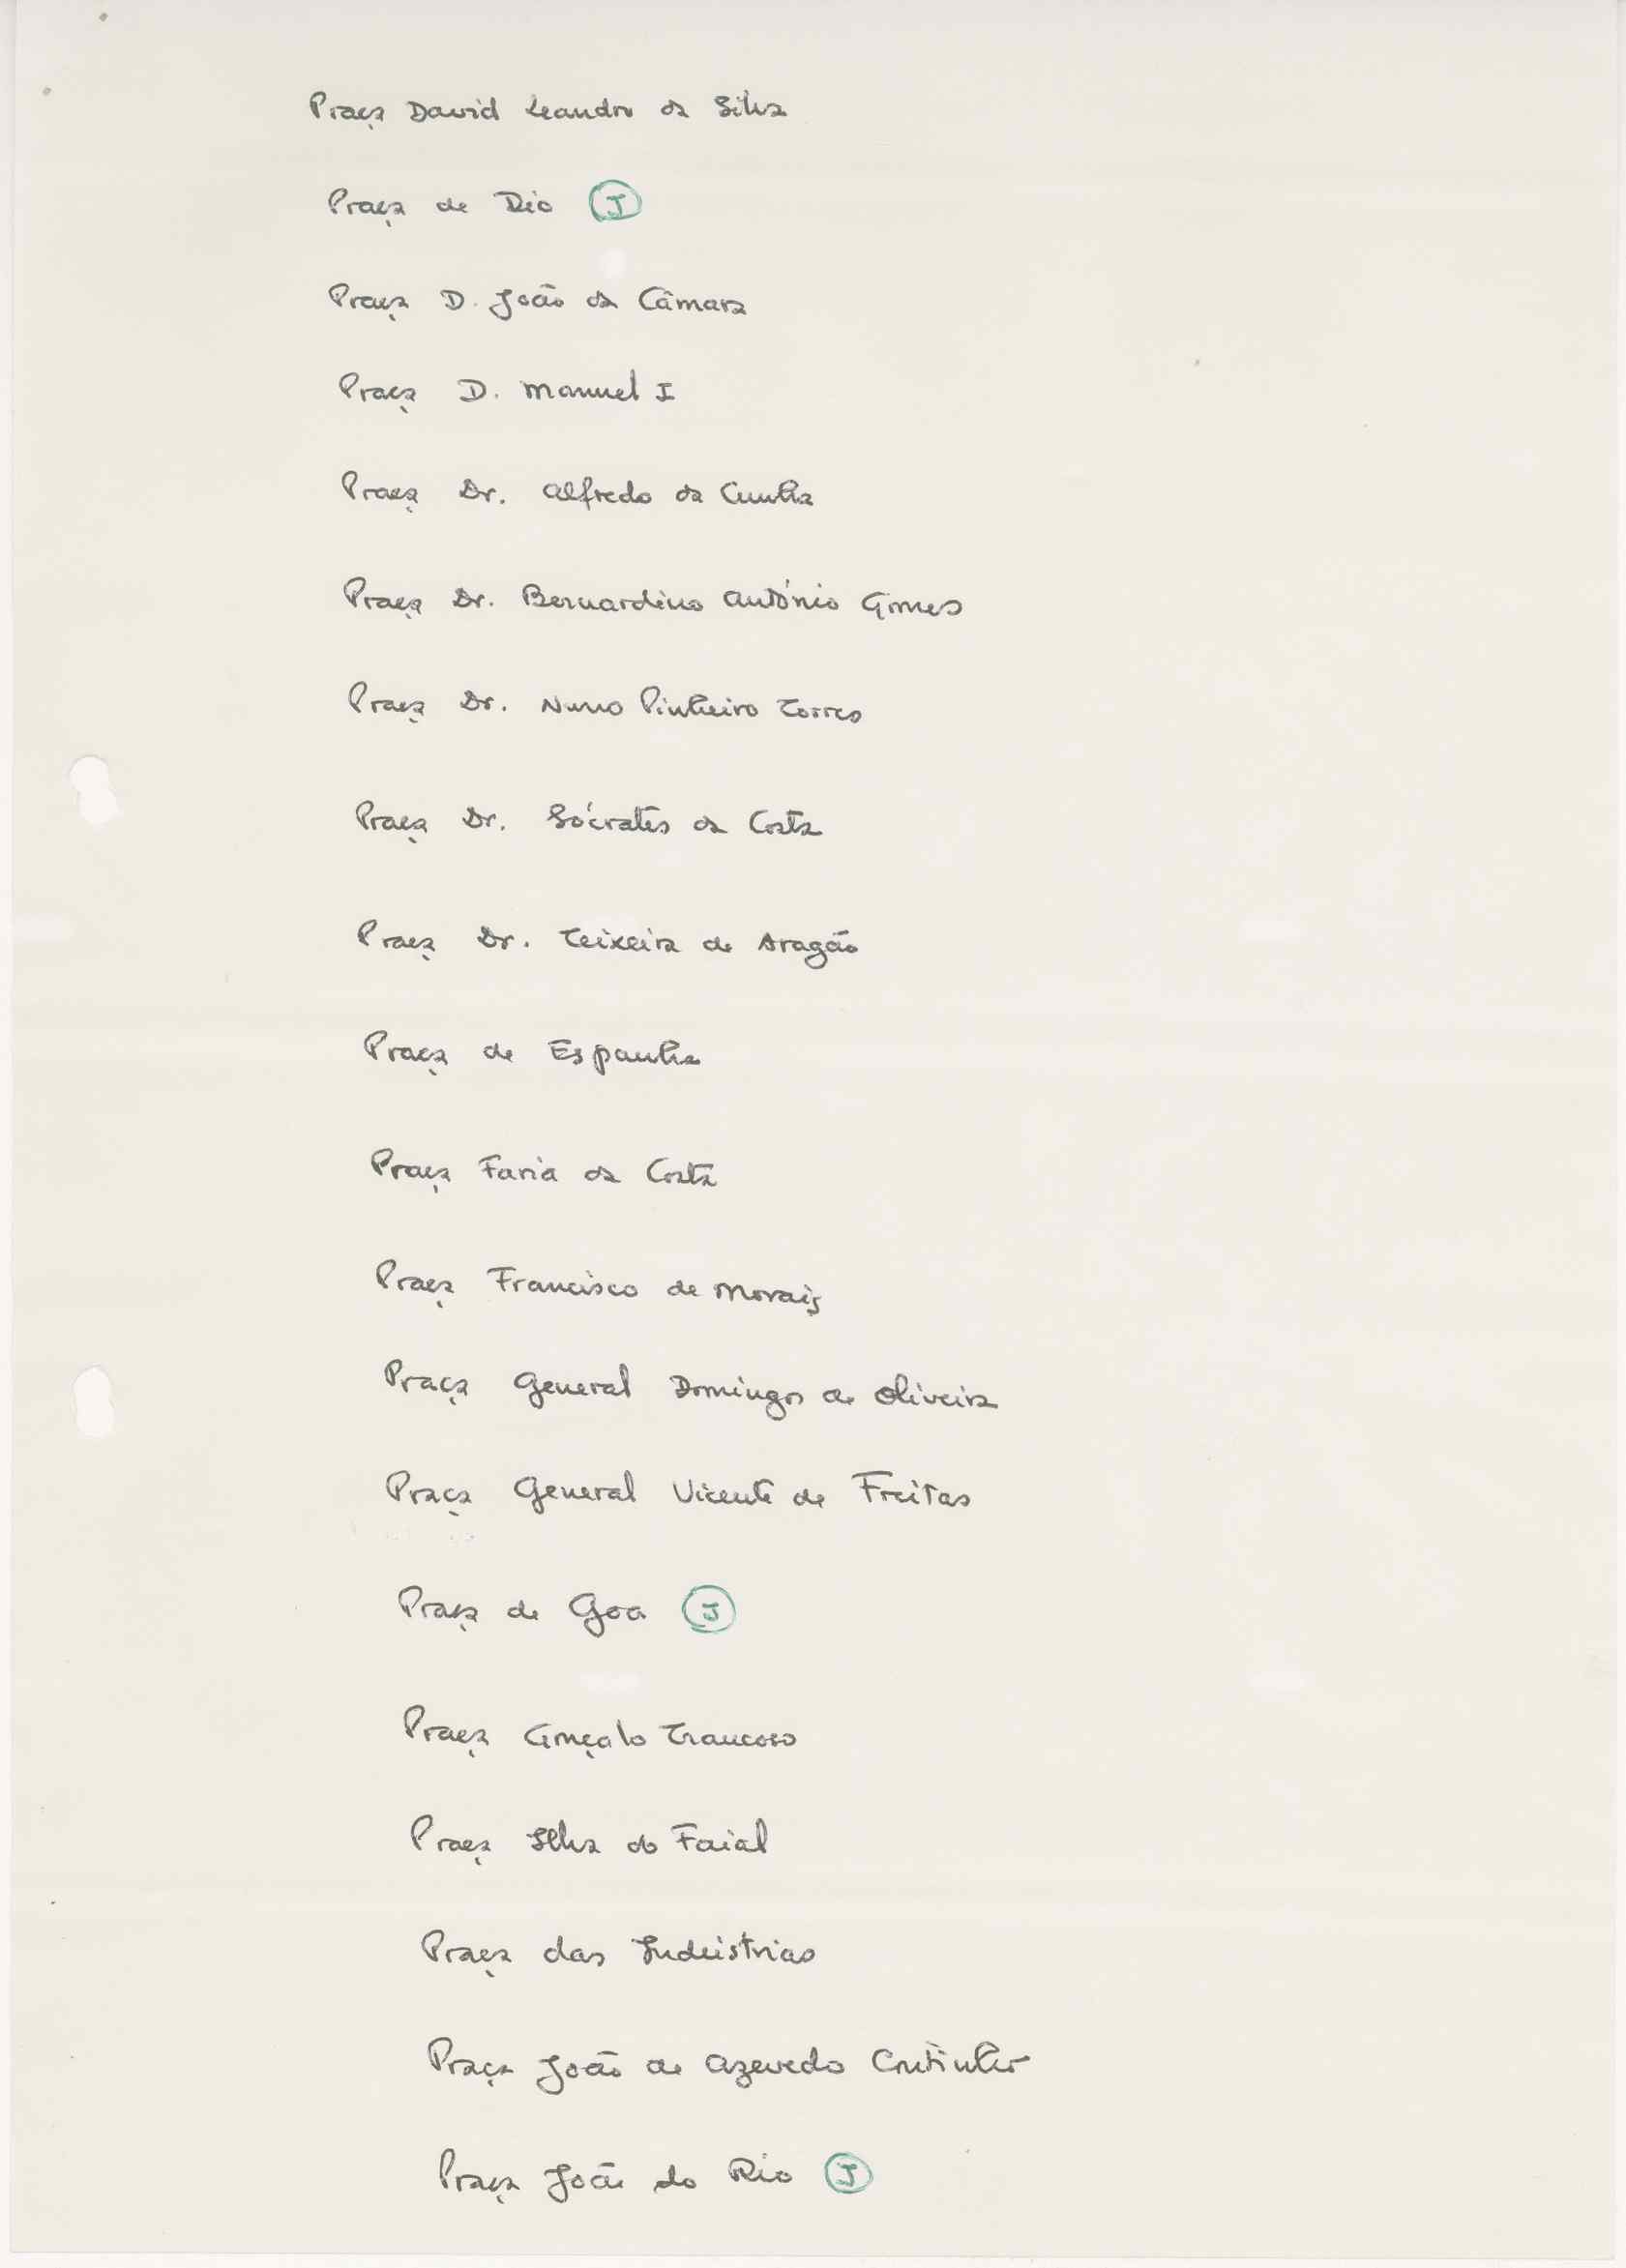 Praça David Leandro da Silva
Praça de Dio J
Praça D. João da Câmara
Praça D. Manuel I
Praça Dr. Alfredo da Cunha
Praça Dr. Bernardino António Gomes
Praça Dr. Nuno Pinheiro Torres
Praça Dr. Sócrates da Costa
Praça Dr. Teixeira de Aragão
Praça de Espanha
Praça Faria da Costa
Praça Francisco de Morais
Praça General Domingos de Oliveira
Praça General Vicente de Freitas
Praça de Goa J
Praça Gonçalo Trancoso
Praça Ilha do Faial
Praça das Indústrias
Praça João de Azevedo Coutinho
Praça João do Rio J